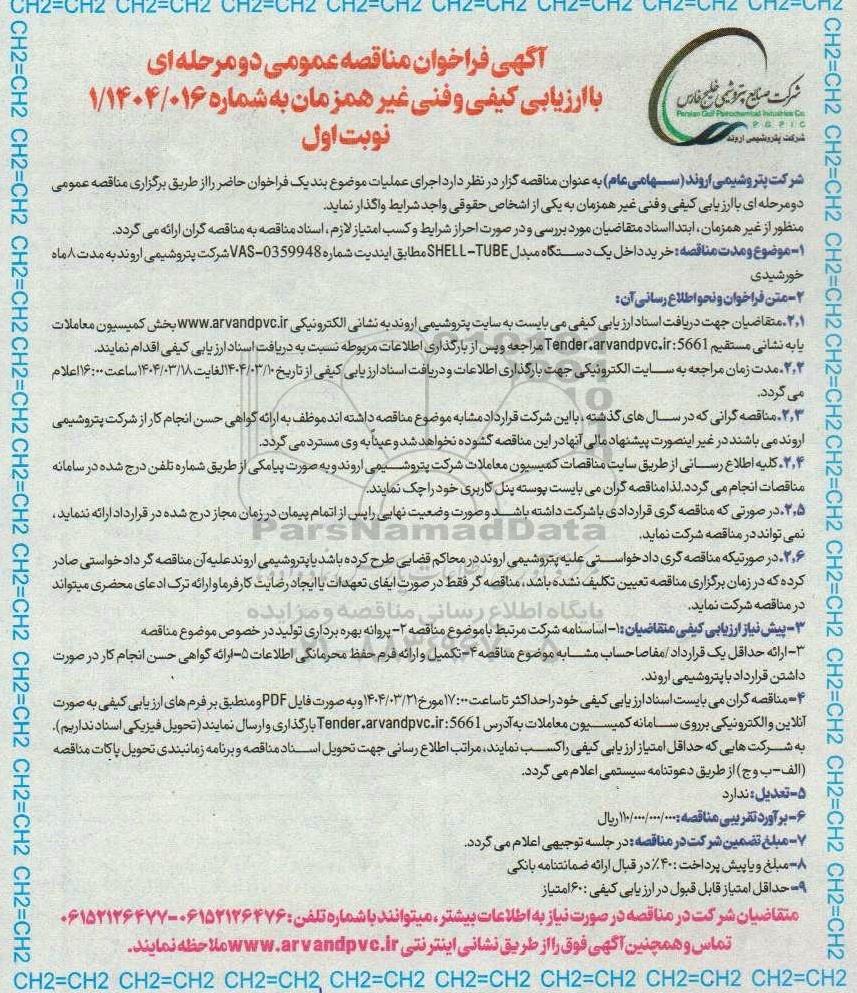 CH2=CH2 CH2=CH2 CH2=CH2 CH2=CH2 CH2=CH2 CH2=CH2 CH2=CH2 CH2=CH2
آگهی فراخوان مناقصه عمومی دو مرحله ای
با ارزیابی کیفی و فنی غیر همزمان به شماره ۱/۱۴۰۴/۰۱۶
نوبت اول
شرکت صنایع پتروشیمی خلیج فارس
Persian Gulf Petrochemical Industries Co
P G P I C
شرکت پتروشیمی اروند
شرکت پتروشیمی اروند (سهامی عام) به عنوان مناقصه گزار در نظر دارد اجرای عملیات موضوع بند یک فراخوان حاضر را از طریق برگزاری مناقصه عمومی
دو مرحله ای با ارزیابی کیفی و فنی غیر همزمان به یکی از اشخاص حقوقی واجد شرایط واگذار نماید.
منظور از غیر همزمان، ابتدا اسناد متقاضیان مورد بررسی و در صورت احراز شرایط و کسب امتیاز لازم، اسناد مناقصه به مناقصه گران ارائه می گردد.
۱-موضوع و مدت مناقصه: خرید داخل یک دستگاه مبدل SHELL-TUBE مطابق ایندیت شماره VAS-0359948 شرکت پتروشیمی اروند به مدت ۸ ماه
خورشیدی
۲-متن فراخوان و نحو اطلاع رسانی آن:
۲,۱.متقاضیان جهت دریافت اسناد ارزیابی کیفی می بایست به سایت پتروشیمی اروند به نشانی الکترونیکی www.arvandpvc.ir بخش کمیسیون معاملات
یا به نشانی مستقیم Tender.arvandpvc.ir:5661 مراجعه و پس از بارگذاری اطلاعات مربوطه نسبت به دریافت اسناد ارزیابی کیفی اقدام نمایند.
۲,۲.مدت زمان مراجعه به سایت الکترونیکی جهت بارگذاری اطلاعات و دریافت اسناد ارزیابی کیفی از تاریخ ۱۴۰۴/۰۳/۱۰ لغایت ۱۴۰۴/۰۳/۱۸ ساعت ۱۶:۰۰ اعلام
می گردد.
۲,۳.مناقصه گرانی که در سال های گذشته، با این شرکت قرارداد مشابه موضوع مناقصه داشته اند موظف به ارائه گواهی حسن انجام کار از شرکت پتروشیمی
اروند می باشند در غیر اینصورت پیشنهاد مالی آنها در این مناقصه گشوده نخواهد شد و عیناً به وی مسترد می گردد.
۲,۴.کلیه اطلاع رسانی از طریق سایت مناقصات کمیسیون معاملات شرکت پتروشیمی اروند و به صورت پیامکی از طریق شماره تلفن درج شده در سامانه
مناقصات انجام می گردد.لذا مناقصه گران می بایست پیوسته پنل کاربری خود را چک نمایند.
۲,۵.در صورتی که مناقصه گری قراردادی با شرکت داشته باشد و صورت وضعیت نهایی را پس از اتمام پیمان در زمان مجاز درج شده در قرارداد ارائه ننماید،
نمی تواند در مناقصه شرکت نماید.
۲,۶.در صورتیکه مناقصه گری دادخواستی علیه پتروشیمی اروند در محاکم قضایی طرح کرده باشد یا پتروشیمی اروند علیه آن مناقصه گر دادخواستی صادر
کرده که در زمان برگزاری مناقصه تعیین تکلیف نشده باشد، مناقصه گر فقط در صورت ایفای تعهدات یا ایجاد رضایت کارفرما و ارائه ترک ادعای محضری میتواند
در مناقصه شرکت نماید.
۳-پیش نیاز ارزیابی کیفی متقاضیان:۱- اساسنامه شرکت مرتبط با موضوع مناقصه ۲-پروانه بهره برداری تولید در خصوص موضوع مناقصه
۳-ارائه حداقل یک قرارداد/مفاصا حساب مشابه موضوع مناقصه ۴-تکمیل و ارائه فرم حفظ محرمانگی اطلاعات ۵-ارائه گواهی حسن انجام کار در صورت
داشتن قرارداد با پتروشیمی اروند.
۴-مناقصه گران می بایست اسناد ارزیابی کیفی خود را حداکثر تا ساعت ۱۷:۰۰ مورخ ۱۴۰۴/۰۳/۲۱ و به صورت فایل PDF و منطبق بر فرم های ارزیابی کیفی به صورت
آنلاین و الکترونیکی بر روی سامانه کمیسیون معاملات به آدرس Tender.arvandpvc.ir:5661 بارگذاری و ارسال نمایند (تحویل فیزیکی اسناد نداریم).
به شرکت هایی که حداقل امتیاز ارزیابی کیفی را کسب نمایند، مراتب اطلاع رسانی جهت تحویل اسناد مناقصه و برنامه زمانبندی تحویل پاکات مناقصه
(الف-ب و ج) از طریق دعوتنامه سیستمی اعلام می گردد.
۵-تعدیل: ندارد
۶-برآورد تقریبی مناقصه: ۱۱۰/۰۰۰/۰۰۰/۰۰۰ ریال
۷-مبلغ تضمین شرکت در مناقصه: در جلسه توجیهی اعلام می گردد.
۸-مبلغ و یا پیش پرداخت: ۴۰٪ در قبال ارائه ضمانتنامه بانکی
۹-حداقل امتیاز قابل قبول در ارزیابی کیفی: ۶۰ امتیاز
متقاضیان شرکت در مناقصه در صورت نیاز به اطلاعات بیشتر، میتوانند با شماره تلفن: ۰۶۱۵۲۱۲۶۴۷۶-۰۶۱۵۲۱۲۶۴۷۷
تماس و همچنین آگهی فوق را از طریق نشانی اینترنتی www.arvandpvc.ir ملاحظه نمایند.
ParsNamadData
پایگاه اطلاع رسانی مناقصه و مزایده
CH2=CH2 CH2=CH2 CH2=CH2 CH2=CH2 CH2=CH2 CH2=CH2 CH2=CH2 CH2=CH2